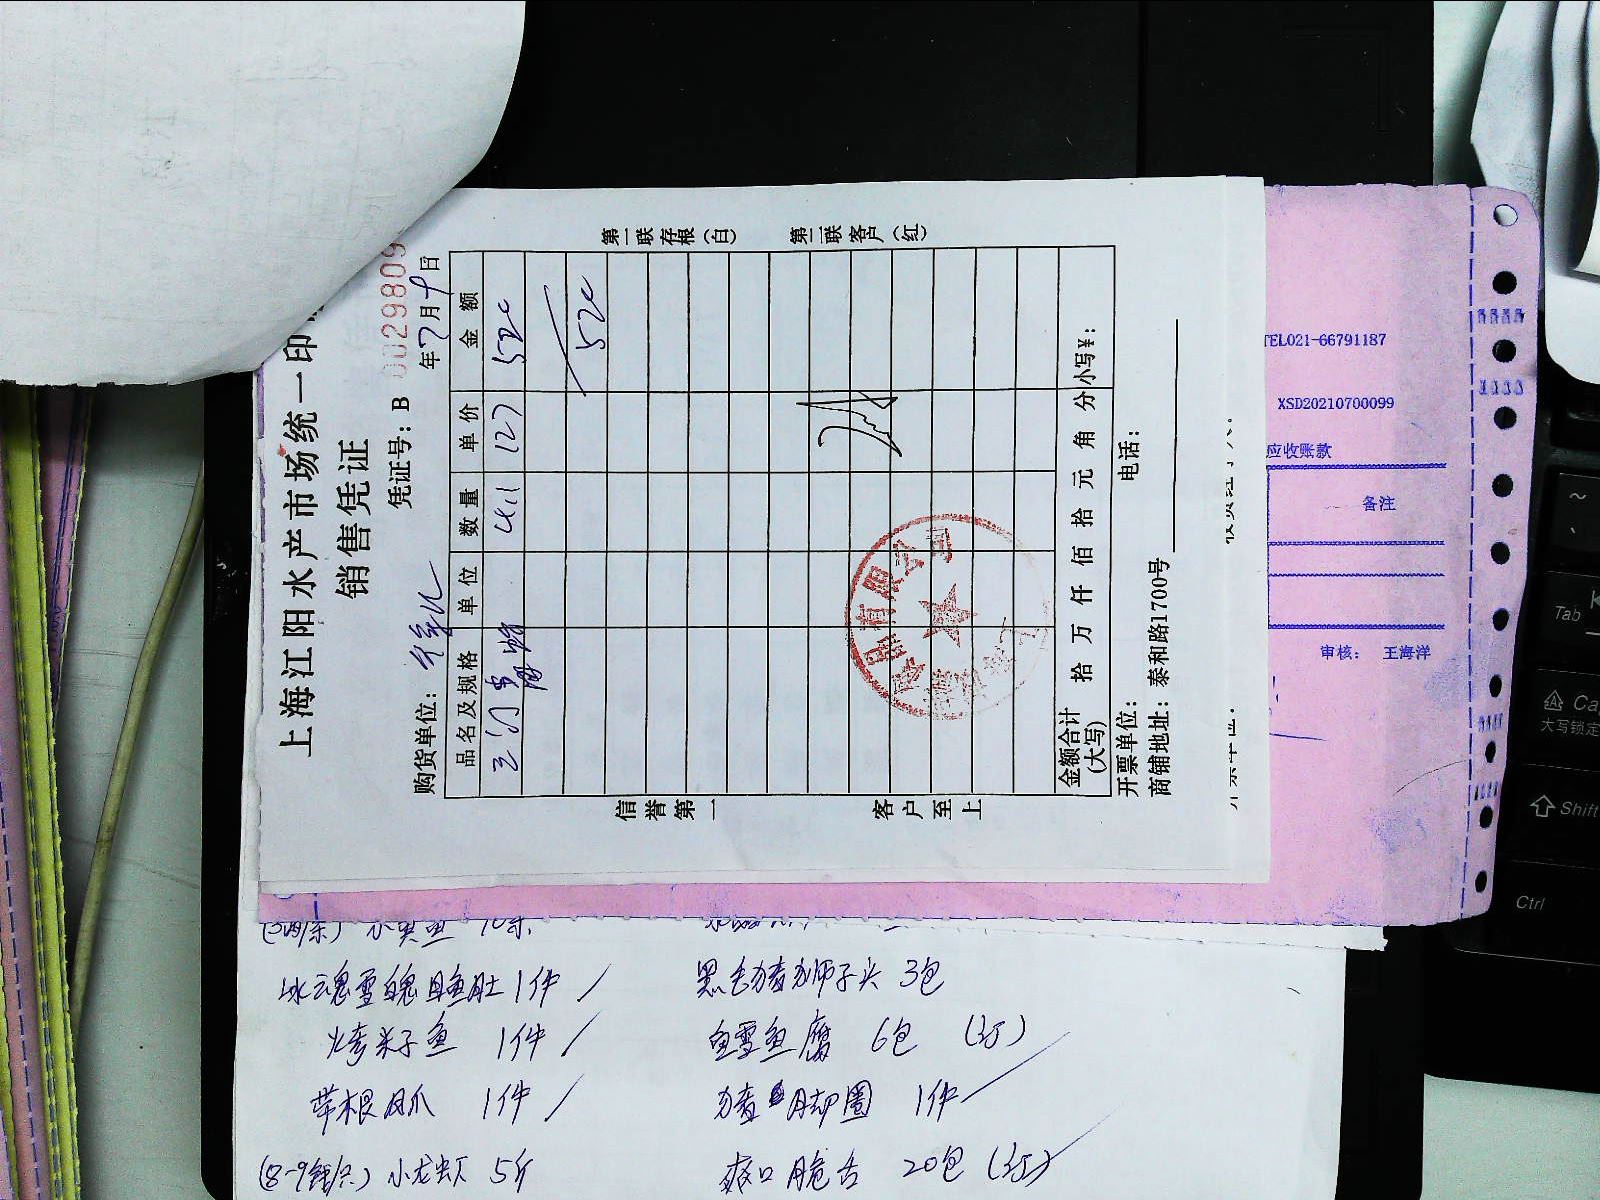 上海江阳水产市场统一印
销售凭证
凭证号：B 0029809
购货单位：
年7月9日
品名及规格 单位 数量 单价 金额
三门青蟹 4.1 127 520
520
金额合计(大写) 拾 万 仟 佰 拾 元 角 分 小写¥：
开票单位：
电话：
商铺地址：泰和路1700号
信誉第一
客户至上
第一联存根（白）
第二联客户（红）
有限公司
TEL021-66791187
XSD20210700099
应收账款
备注
审核： 王海洋
小黄鱼 10条
冰魂雪魄目鱼肚 1件
黑毛猪狮子头 3包
烤米子鱼 1件
鱼雪鱼腐 6包
草根凤爪 1件
猪脚圈 1件
(8-9钱/只) 小龙虾 5斤
爽口脆舌 20包
Tab
大写锁定
Shift
Ctrl